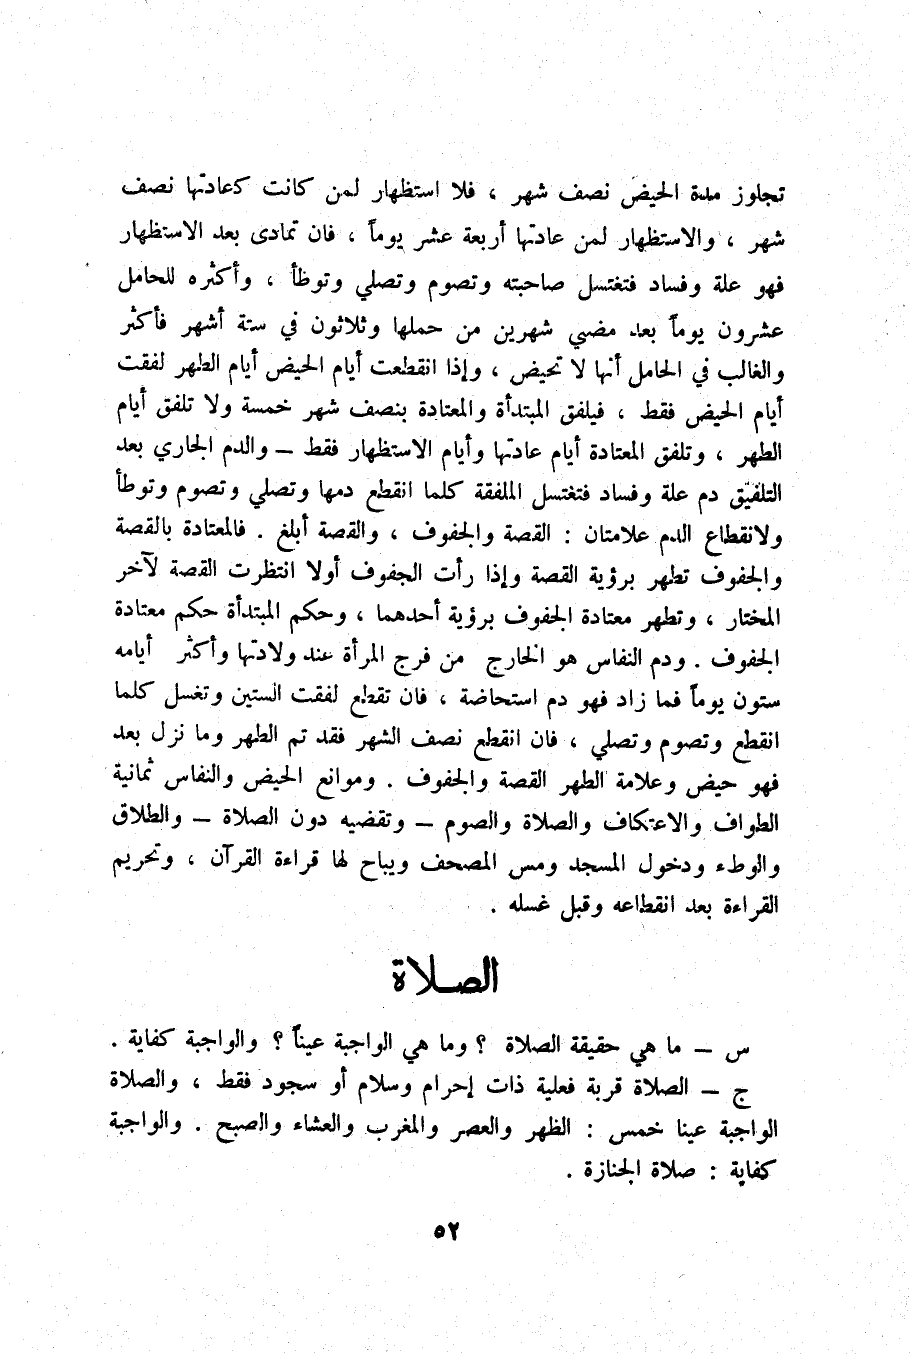 تجاوز مدة الحيض نصف شهر ، فلا استظهار لمن كانت كعادتها نصف
شهر ، والاستظهار لمن عادتها أربعة عشر يوماً ، فان تمادى بعد الاستظهار
فهو علة وفساد فتغتسل صاحبته وتصوم وتصلي وتوطأ ، وأكثره للحامل
عشرون يوماً بعد مضي شهرين من حملها وثلاثون في ستة أشهر فأكثر
والغالب في الحامل أنها لا تحيض ، وإذا انقطعت أيام الحيض أيام الطهر لفقت
أيام الحيض فقط ، فيلفق المبتدأة والمعتادة بنصف شهر خمسة ولا تلفق أيام
الطهر ، وتلفق المعتادة أيام عادتها وأيام الاستظهار فقط – والدم الجاري بعد
التلفيق دم علة وفساد فتغتسل الملفقة كلما انقطع دمها وتصلي وتصوم وتوطأ
ولانقطاع الدم علامتان : القصة والجفوف ، والقصة أبلغ . فالمعتادة بالقصة
والجفوف تطهر برؤية القصة وإذا رأت الجفوف أولا انتظرت القصة لآخر
المختار ، وتطهر معتادة الجفوف برؤية أحدهما ، وحكم المبتدأة حكم معتادة
الجفوف . ودم النفاس هو الخارج من فرج المرأة عند ولادتها وأكثر أيامه
ستون يوماً فما زاد فهو دم استحاضة ، فان تقطع لفقت الستين وتغسل كلما
انقطع وتصوم وتصلي ، فان انقطع نصف الشهر فقد تم الطهر وما نزل بعد
فهو حيض وعلامة الطهر القصة والجفوف . وموانع الحيض والنفاس ثمانية
الطواف والاعتكاف والصلاة والصوم – وتقضيه دون الصلاة – والطلاق
والوطء ودخول المسجد ومس المصحف ويباح لها قراءة القرآن ، وتحريم
القراءة بعد انقطاعه وقبل غسله .
الصلاة
س – ما هي حقيقة الصلاة ؟ وما هي الواجبة عيناً ؟ والواجبة كفاية .
ج – الصلاة قربة فعلية ذات إحرام وسلام أو سجود فقط ، والصلاة
الواجبة عينا خمس : الظهر والعصر والمغرب والعشاء والصبح . والواجبة
كفاية : صلاة الجنازة .
٥٢